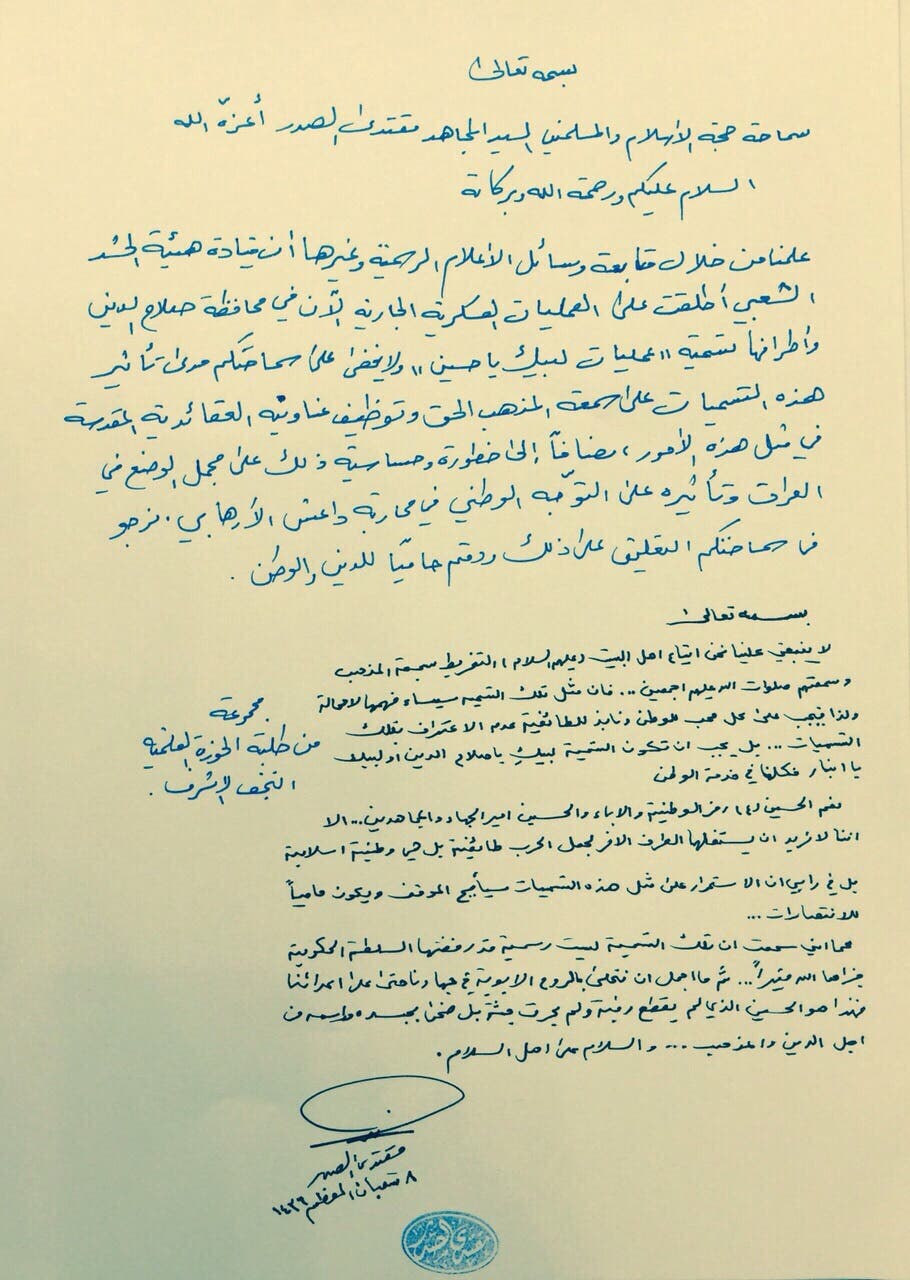 بسمه تعالى
سماحة حجة الاسلام والمسلمين السيد المجاهد مقتدى الصدر أعزّه الله
السلام عليكم ورحمة الله وبركاتة
علمنا من خلال متابعة وسائل الاعلام الرسمية وغيرها أن قيادة هيئة الحشد
الشعبي أطلقت على العمليات العسكرية الجارية الآن في محافظة صلاح الدين
وأطرافها تسمية "عمليات لبيك ياحسين" ولا يخفى على سماحتكم مدى تأثير
هذه التسميات على سمعة المذهب الحق وتوظيف عناوينه العقائدية المقدسة
في مثل هذه الأمور، مضافاً إلى خطورة وحساسية ذلك على مجمل الوضع في
العراق وتأثيره على التوجّه الوطني في محاربة داعش الأرهابي. نرجو
من سماحتكم التعليق على ذلك ودمتم حامياً للدين والوطن.
مجموعة
من طلبة الحوزة العلمية
النجف الاشرف.
بسمه تعالى
لا ينبغي علينا نحن اتباع اهل البيت (عليهم السلام) التفريط بسمعة المذهب
وسمعتهم صلوات الله عليهم اجمعين ... فان مثل تلك التسمية سيساء فهمها لا محالة
ولذا فيجب على كل محب للوطن ونابذ للطائفية عدم الاعتراف بتلك
التسميات ... بل يجب ان تكون التسمية لبيك ياصلاح الدين او لبيك
يا انبار فكلها في خدمة الوطن
نعم الحسين (ع) رمز الوطنية والاباء والحسين امير الجهاد والمجاهدين ... الا
اننا لا نريد ان يستغلها الطرف الاخر لجعل الحرب طائفية بل هي وطنية اسلامية
بل في رأيي ان الاستمرار على مثل هذه التسميات سيأجج الموقف ويكون ماحياً
للانتصارات ...
كما انني سمعت ان تلك التسمية ليست رسمية قد رفضتها السلطة الحكومية
فجزاها الله خيراً ... ثم ما اجمل ان نتحلى بالروح الابوية في جهادنا حتى على اعدائنا
فهذا هو الحسين الذي لم يقطع رقبة ولم يحرق جثة بل ضحى بجسده واسمه من
اجل الدين والمذهب ... والسلام على اهل السلام.
مقتدى الصدر
٨ شعبان المعظم ١٤٣٦
مقتدى الصدر